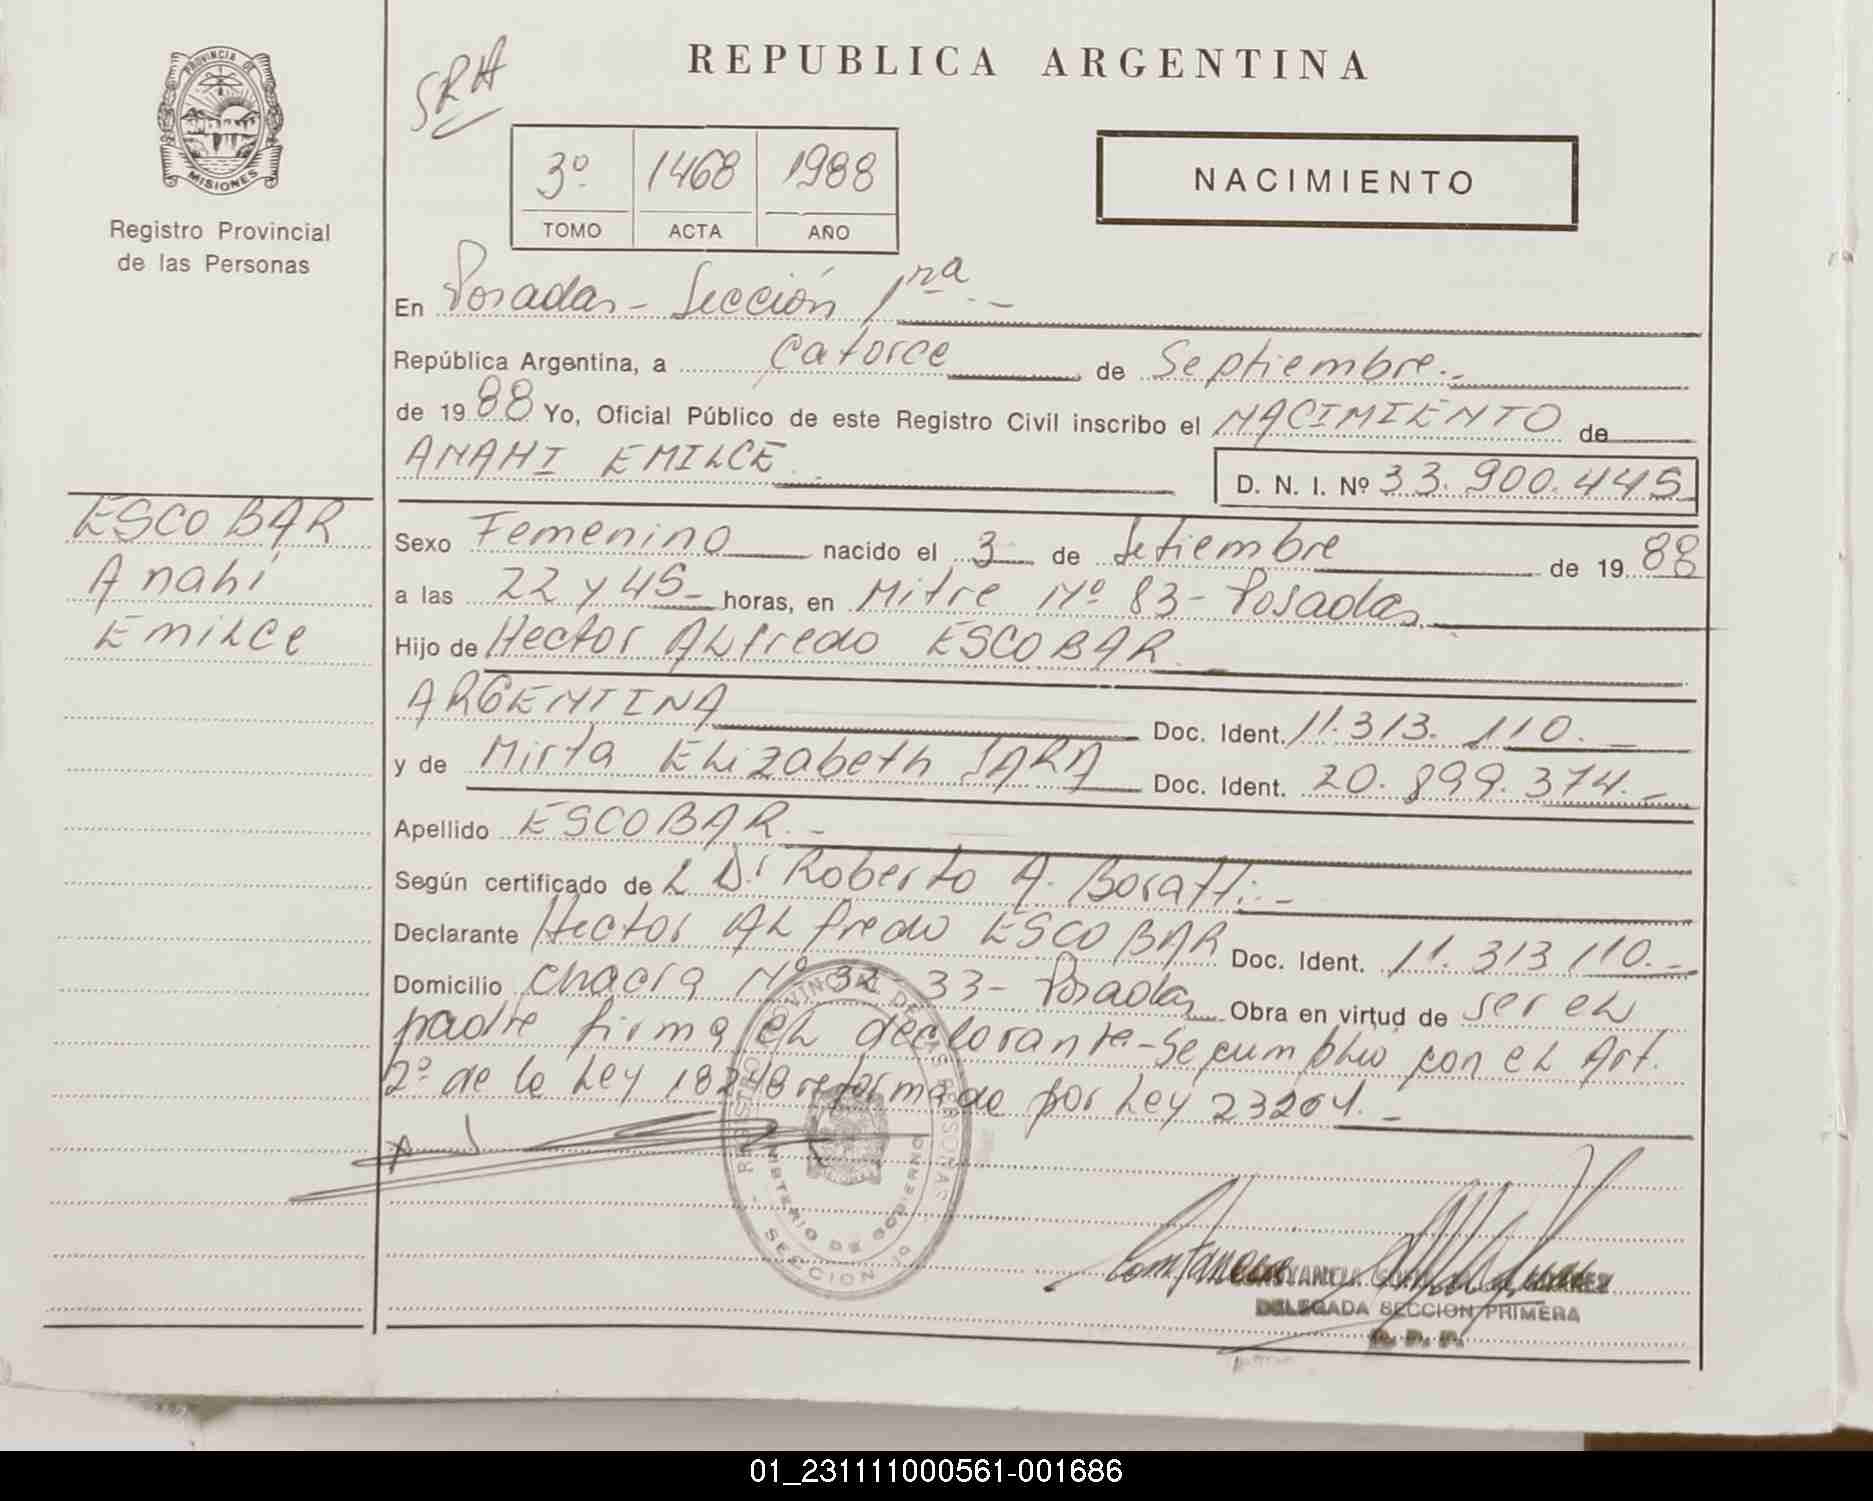 PROVINCIA DE
MISIONES
Registro Provincial
de las Personas
SRA
REPUBLICA ARGENTINA
3º 1468 1988
TOMO ACTA AÑO
NACIMIENTO
En Posadas - Sección 1ra. -
República Argentina, a Catorce de Septiembre. -
de 1988 Yo, Oficial Público de este Registro Civil inscribo el NACIMIENTO de
ANAHI EMILCE D. N. I. Nº 33.900.445
ESCOBAR
Anahí
Emilce
Sexo Femenino nacido el 3 de Setiembre de 1988
a las 22 y 45 - horas, en Mitre Nº 83 - Posadas
Hijo de Hector Alfredo ESCOBAR. -
ARGENTINA Doc. Ident. 11.313.110. -
y de Mirta Elizabeth SARA Doc. Ident. 20.899.374. -
Apellido ESCOBAR. -
Según certificado de L Dr Roberto A. Boratti. -
Declarante Hector Alfredo ESCOBAR Doc. Ident. 11.313110. -
Domicilio chacra Nº 32 33 - Posadas Obra en virtud de ser el
padre firma el declarante - Se cumplio con el Art.
2º de la Ley 18248 reformade por Ley 23264. -
REGISTRO PROVINCIAL DE LAS PERSONAS
MINISTERIO DE GOBIERNO
SECCION 1º
DELEGADA SECCION PRIMERA
R. P. P.
01_231111000561-001686